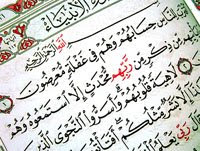 الأنبياء
الله الرحمن الرحيم
لِلنَّاسِ حِسَابُهُمْ وَهُمْ فِي غَفْلَةٍ مُعْرِضُونَ
مِنْ ذِكْرٍ مِنْ رَبِّهِمْ مُحْدَثٍ إِلَّا اسْتَمَعُوهُ وَهُمْ
لَاهِيَةً قُلُوبُهُمْ وَأَسَرُّوا النَّجْوَى
إِلَّا بَشَرٌ مِثْلُكُمْ
رَبِّي